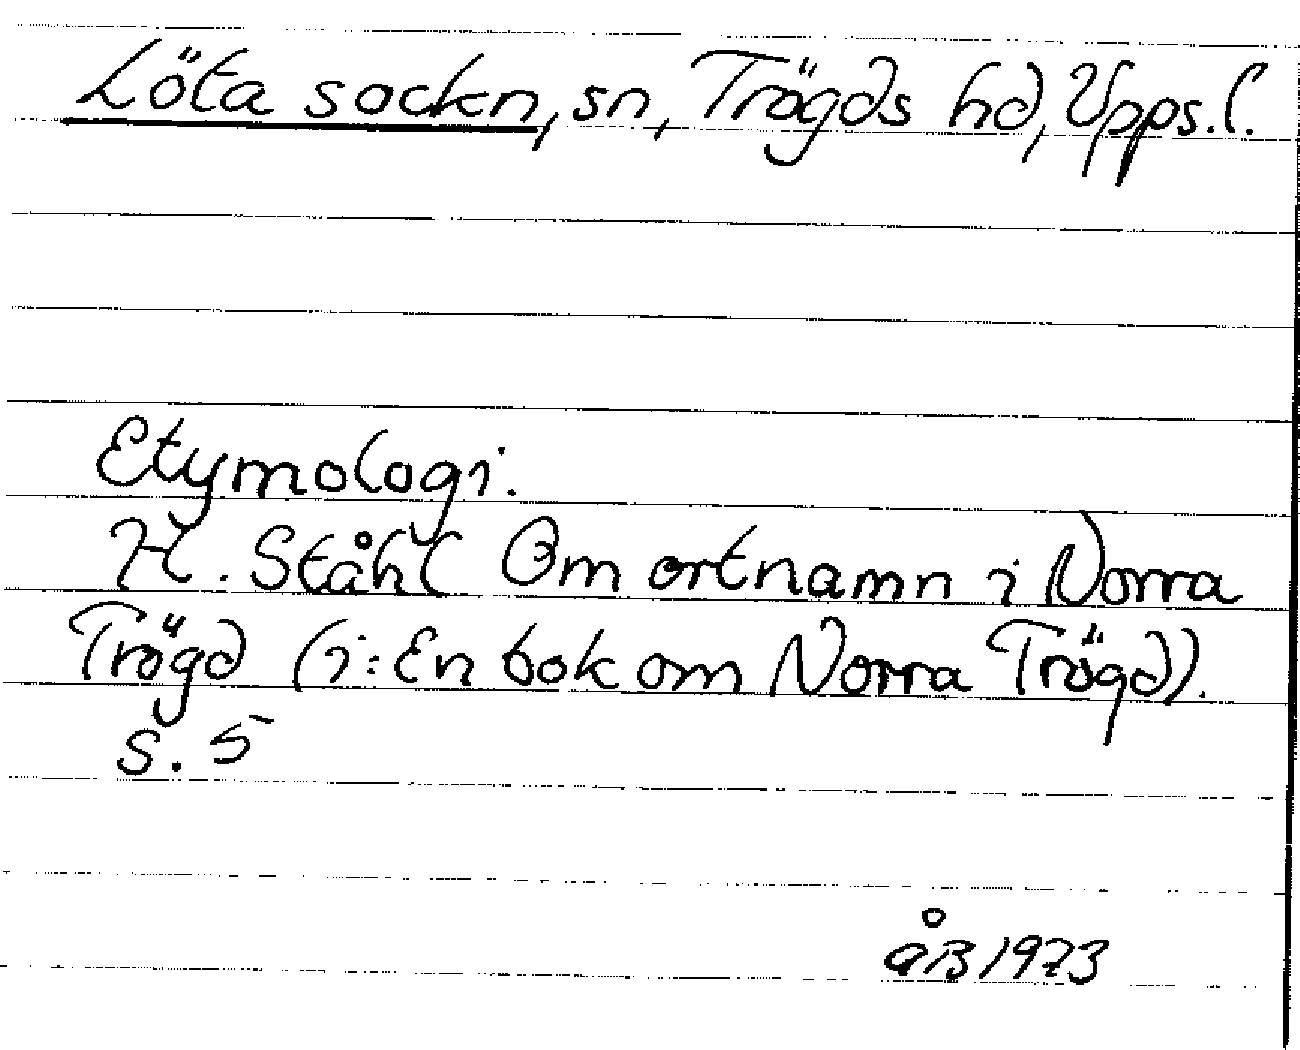 Löta sockn, sn, Trögds hd, Upps. l.
Etymologi.
H. Ståhl Om ortnamn i Norra
Trögd (i: En bok om Norra Trögd).
S. 5
ÅB 1973